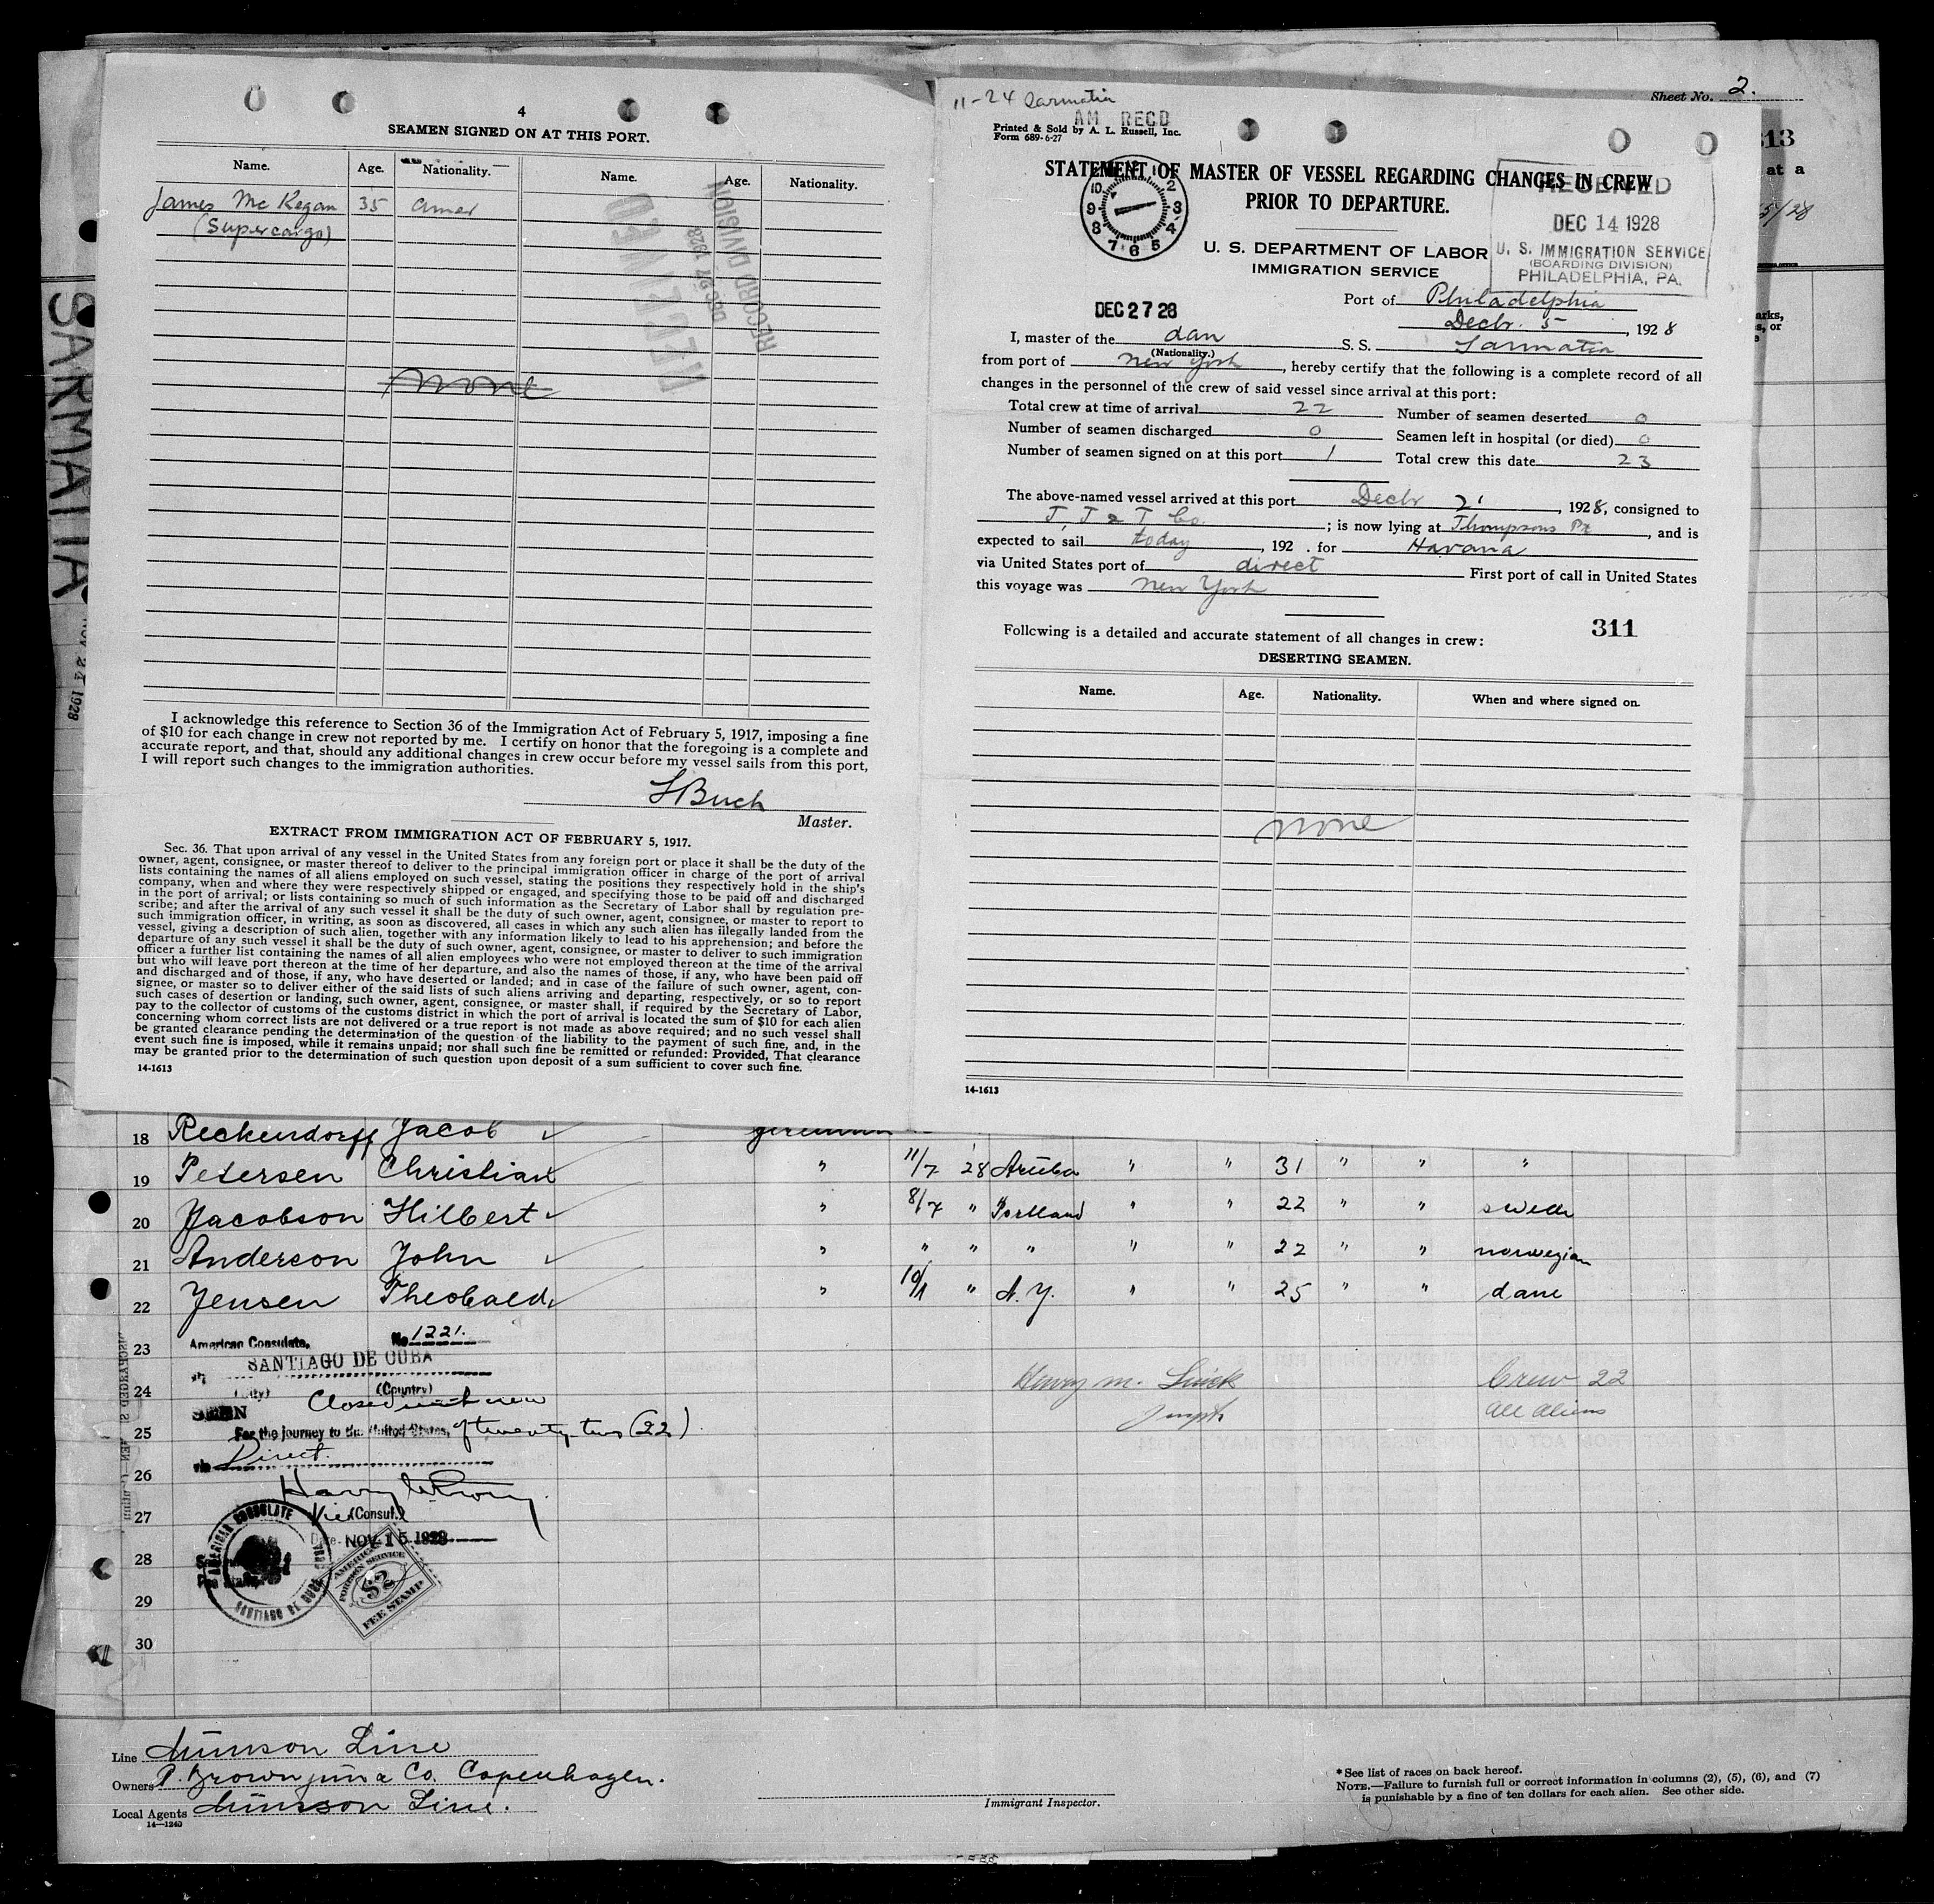 4
SEAMEN SIGNED ON AT THIS PORT.
Name. Age. Nationality. Name. Age. Nationality.
James McKegan 35 amer
(Supercargo)
RECORD DIVISION
DEC 27 1928
none
I acknowledge this reference to Section 36 of the Immigration Act of February 5, 1917, imposing a fine
of $10 for each change in crew not reported by me. I certify on honor that the foregoing is a complete and
accurate report, and that, should any additional changes in crew occur before my vessel sails from this port,
I will report such changes to the immigration authorities.
Buch
Master.
EXTRACT FROM IMMIGRATION ACT OF FEBRUARY 5, 1917.
Sec. 36. That upon arrival of any vessel in the United States from any foreign port or place it shall be the duty of the
owner, agent, consignee, or master thereof to deliver to the principal immigration officer in charge of the port of arrival
lists containing the names of all aliens employed on such vessel, stating the positions they respectively hold in the ship's
company, when and where they were respectively shipped or engaged, and specifying those to be paid off and discharged
in the port of arrival; or lists containing so much of such information as the Secretary of Labor shall by regulation pre-
scribe; and after the arrival of any such vessel it shall be the duty of such owner, agent, consignee, or master to report to
such immigration officer, in writing, as soon as discovered, all cases in which any such alien has illegally landed from the
vessel, giving a description of such alien, together with any information likely to lead to his apprehension; and before the
departure of any such vessel it shall be the duty of such owner, agent, consignee, or master to deliver to such immigration
officer a further list containing the names of all alien employees who were not employed thereon at the time of the arrival
but who will leave port thereon at the time of her departure, and also the names of those, if any, who have been paid off
and discharged and of those, if any, who have deserted or landed; and in case of the failure of such owner, agent, con-
signee, or master so to deliver either of the said lists of such aliens arriving and departing, respectively, or so to report
such cases of desertion or landing, such owner, agent, consignee, or master shall, if required by the Secretary of Labor,
pay to the collector of customs of the customs district in which the port of arrival is located the sum of $10 for each alien
concerning whom correct lists are not delivered or a true report is not made as above required; and no such vessel shall
be granted clearance pending the determination of the question of the liability to the payment of such fine, and, in the
event such fine is imposed, while it remains unpaid; nor shall such fine be remitted or refunded: Provided, That clearance
may be granted prior to the determination of such question upon deposit of a sum sufficient to cover such fine.
14-1613
11-24 Sarmatia
AM RECD
Printed & Sold by A. L. Russell, Inc.
Form 689-6-27
STATEMENT OF MASTER OF VESSEL REGARDING CHANGES IN CREW
PRIOR TO DEPARTURE.
U. S. DEPARTMENT OF LABOR
IMMIGRATION SERVICE
RECEIVED
DEC 14 1928
U. S. IMMIGRATION SERVICE
(BOARDING DIVISION)
PHILADELPHIA, PA.
DEC 27 28
Port of Philadelphia
Decbr. 5, 1928
I, master of the dan S. S. Sarmatia
(Nationality.)
from port of New York, hereby certify that the following is a complete record of all
changes in the personnel of the crew of said vessel since arrival at this port:
Total crew at time of arrival 22 Number of seamen deserted 0
Number of seamen discharged 0 Seamen left in hospital (or died) 0
Number of seamen signed on at this port 1 Total crew this date 23
The above-named vessel arrived at this port Decbr 2, 1928, consigned to
J, T & T Co.; is now lying at Thompsons Pt, and is
expected to sail today, 192 . for Havana
via United States port of direct First port of call in United States
this voyage was New York
311
Following is a detailed and accurate statement of all changes in crew:
DESERTING SEAMEN.
Name. Age. Nationality. When and where signed on.
none
14-1613
Sheet No. 2.
313
at a
5/28
SARMATIA
NOV 24 1928
18 Reckendorff Jacob
19 Petersen Christian " 11/7 '28 Aruba " " 31 " " "
20 Jacobson Hilbert " 8/7 " Portland " " 22 " " swede
21 Anderson John " " " " " " 22 " " norwegian
22 Jensen Theobald " 10/1 " N.Y. " " 25 " " dane
23
24
25
26
27
28
29
30
American Consulate, No 1221.
SANTIAGO DE CUBA
(City) (Country)
SEEN
For the journey to the United States, of twenty-two (22)
via Direct.
Vice (Consul)
Date. NOV 15 1928
AMERICAN CONSULATE
SANTIAGO DE CUBA
AMERICAN
FOREIGN SERVICE
$2
FEE STAMP
Crew 22
All aliens
Line Munson Line
Owners P. Brown jun & Co. Copenhagen.
Local Agents Munson Line.
14-1240
Immigrant Inspector.
* See list of races on back hereof.
NOTE.—Failure to furnish full or correct information in columns (2), (5), (6), and (7)
is punishable by a fine of ten dollars for each alien. See other side.